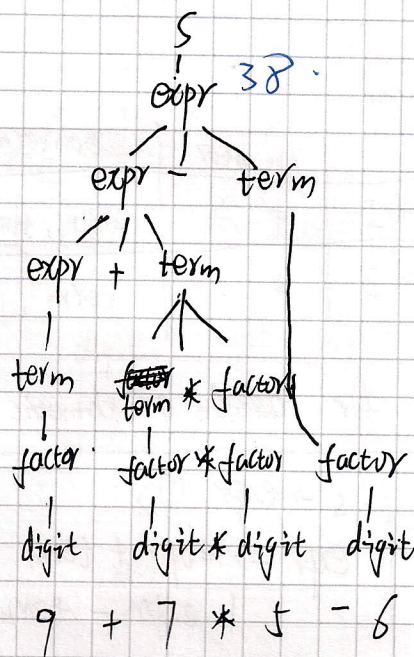 S
expr 38.
expr - term
expr + term
term term * factor
factor factor * factor factor
digit digit * digit digit
9 + 7 * 5 - 6